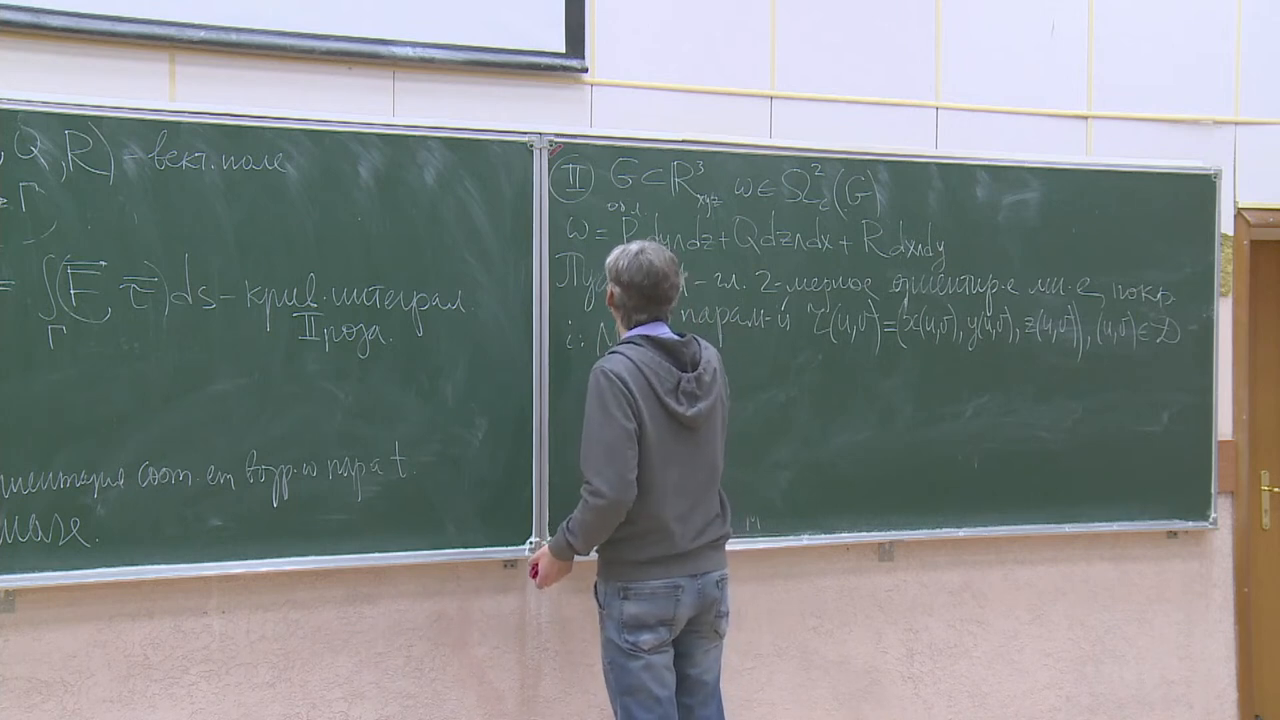 Q, R) – вект. поле
Γ
= ∫_Γ (F̅ τ̅) ds – крив. интеграл
II рода.
соот. ет возр. ю пар-а t.
II G ⊂ R³_xyz ω ∈ Ω²_c(G)
обл.
ω = P dy∧dz + Q dz∧dx + R dx∧dy
– гл. 2-мерное ориентир-е мн-е, покр.
i: M парам-й r̅(u,v) = (x(u,v), y(u,v), z(u,v)), (u,v) ∈ D
M